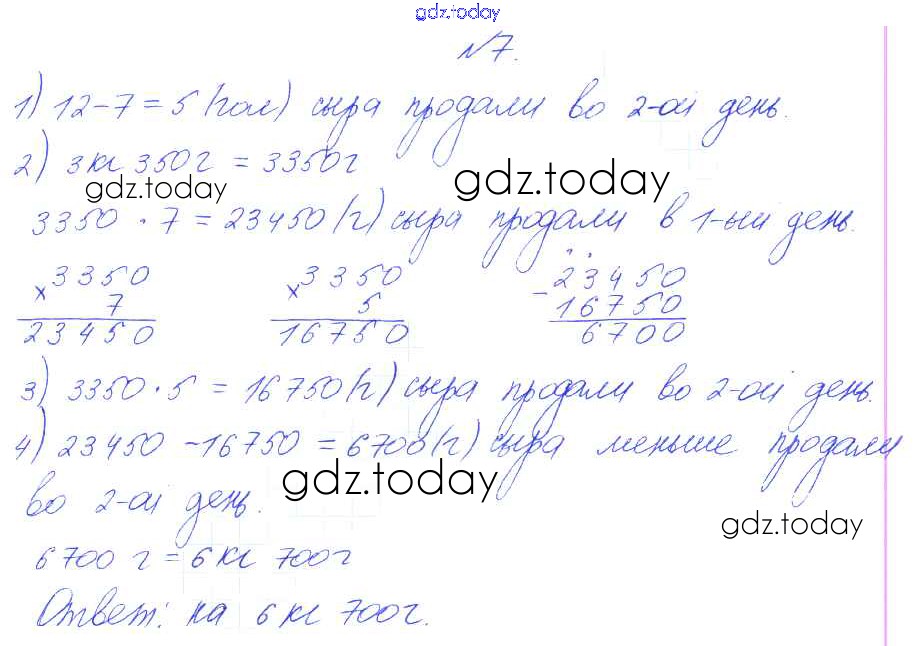 gdz.today
№7.
1) 12-7=5 (гол) сыра продали во 2-ой день.
2) 3кг 350г = 3350г
gdz.today gdz.today
3350 · 7 = 23450 (г) сыра продали в 1-ый день.
× 3350 × 3350 - 23450
7 5 16750
23450 16750 6700
3) 3350·5 = 16750(г) сыра продали во 2-ой день.
4) 23450-16750=6700(г) сыра меньше продали
во 2-ой день. gdz.today
gdz.today
6700 г = 6 кг 700г
Ответ: на 6 кг 700г.